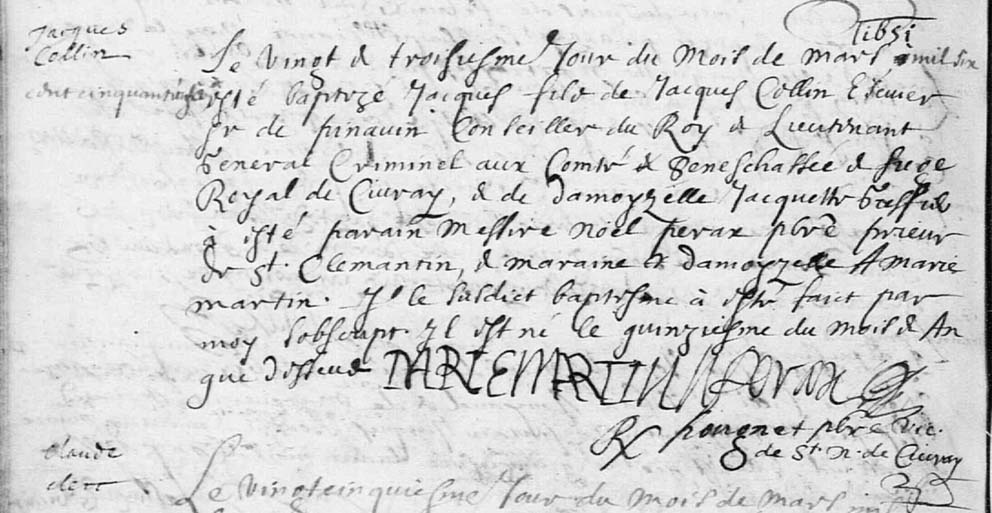 Jacques
Collin
Le vingt & troisiesme Jour du Mois de mars mil six
cent cinquante
esté baptezé Jacques fils de Jacques Collin Escuier
Sr de pinauin Conseiller du Roy & Lieutenant
General Criminel aux Comté & Seneschallée & siege
Royal de Ciuray, & de damoyzelle Jacquette
à esté parain messire noel perax pbre prieur
de St. Clemantin, & maraine damoyzelle Marie
martin. le susdict baptesme à esté faict par
moy soubscript yl est né le quinziesme du mois & An
que dessus MARIE MARTIN N Perax
pougnet pbre vic.
de St. N. de Ciuray
Claude
Le vingtcinquiesme Jour du mois de mars mil